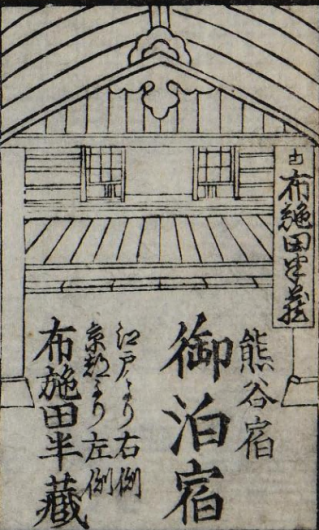 布施田半蔵
熊谷宿
御泊宿
江戸より右側
京都より左側
布施田半藏